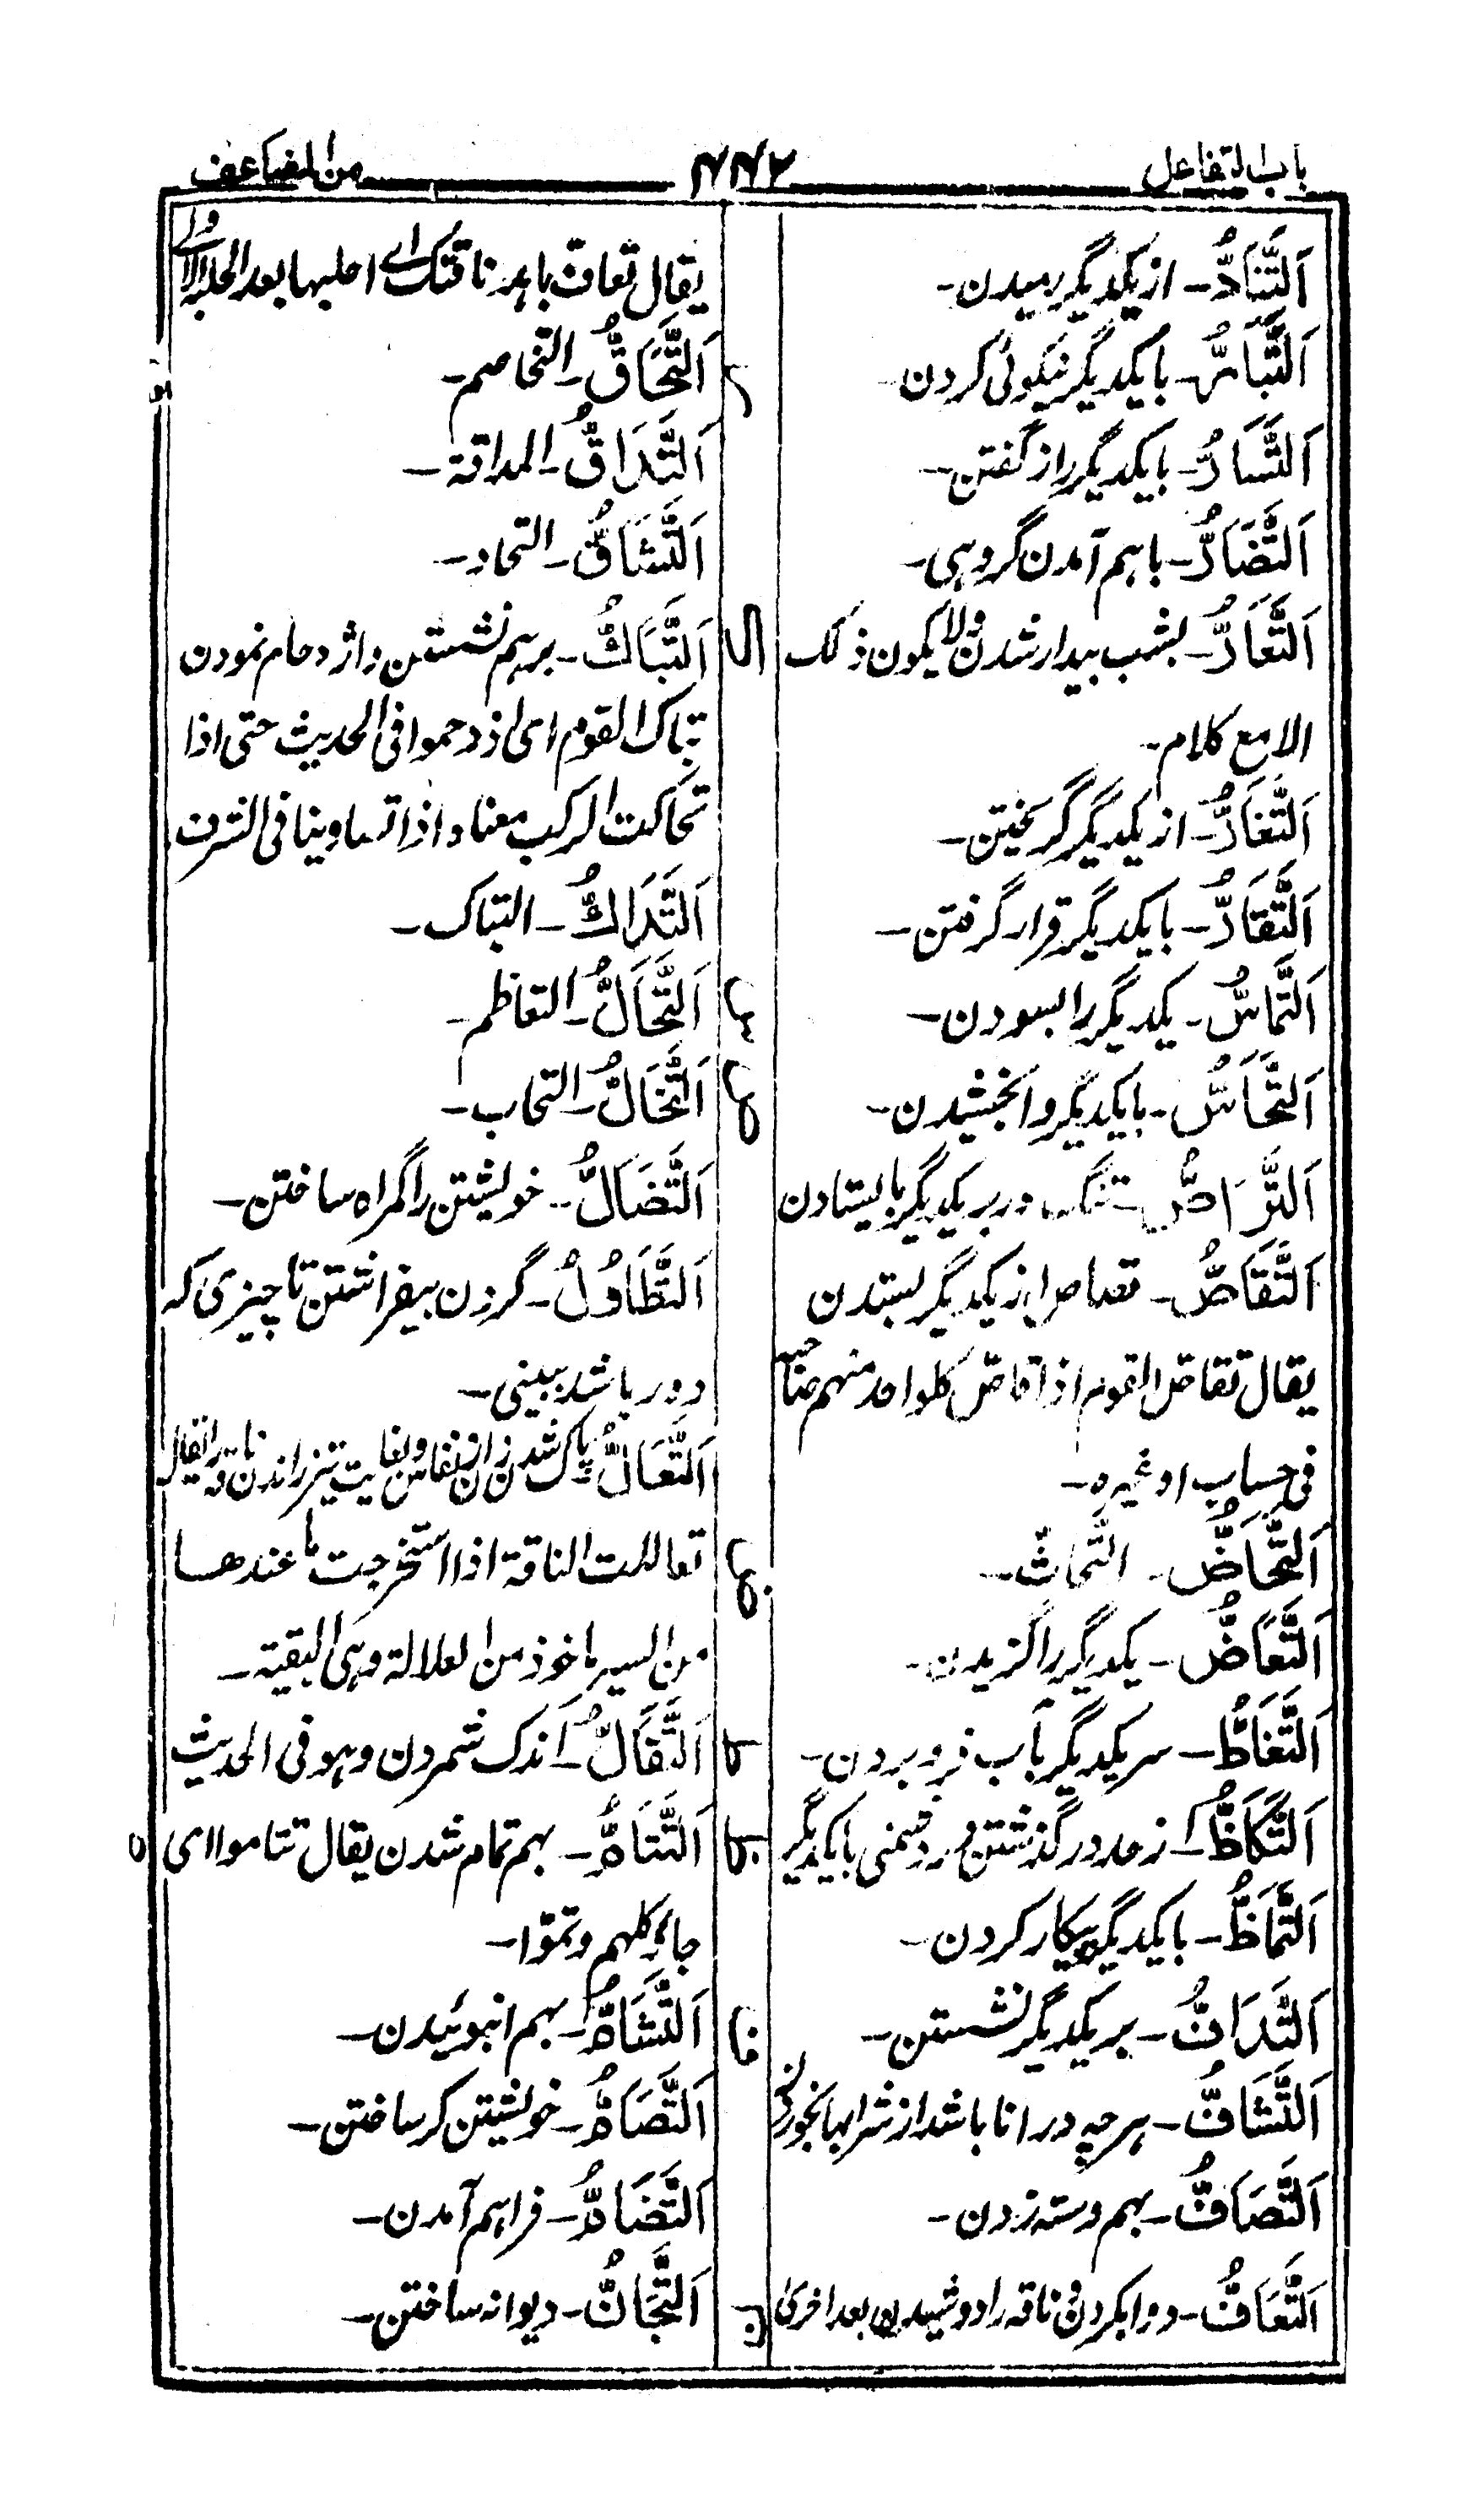 باب التفاعل
۷۷۲
من المضاعف
اَلتَّنَادُّ۔ از یکدیگر رمیدن۔
اَلتَّبَارُّ۔ با یکدیگر نیکوئی کردن
اَلتَّسَارُّ۔ با یکدیگر راز گفتن۔
اَلتَّضَارُّ۔ باہم آمدن گروہی۔
اَلتَّعَارُّ۔ بشب بیدار شدن و لا یکون ذلک
الا مع کلام۔
اَلتَّفَارُّ۔ از یکدیگر گریختن۔
اَلتَّقَارُّ۔ با یکدیگر قرار گرفتن۔
اَلتَّمَاسُّ۔ یکدیگر را بسودن۔
اَلتَّحَاصُّ۔ با یکدیگر وابخشیدن۔
اَلتَّرَاصُّ۔ تنگ در بر یکدیگر بایستادن
اَلتَّقَاصُّ۔ قصاص از یکدیگر بستدن
یقال تقاص القوم اذا قاص کل واحد منہم صاحبہ
فی حساب او غیرہ۔
اَلتَّحَاضُّ۔ التَّحاثُّ۔
اَلتَّعَاضُّ۔ یکدیگر را گزیدن۔
اَلتَّغَاطُّ۔ سر یکدیگر بآب فرو بردن۔
اَلتَّكَاظُّ۔ از حد در گذشتن در دشمنی با یکدیگر
اَلتَّمَاظُّ۔ با یکدیگر پیکار کردن۔
اَلتَّدَافُّ۔ بر یکدیگر نشستن۔
اَلتَّشَافُّ۔ ہر چہ در انا باشد از شراب بخوردن
اَلتَّصَافُّ۔ بہم دستہ زدن۔
اَلتَّعَافُّ۔ دوا کردن و ناقہ را دوشیدن بعد اخری
یقال تعاف یا ہذ ناقتک اے احلبہا بعد الحلبۃ الاولے
اَلتَّحَاقُّ۔ التخاصم۔
اَلتَّدَاقُّ۔ المداقۃ۔
اَلتَّشَاقُّ۔ التحاد۔
اَلتَّبَاكُّ۔ برہم نشستن و ازدحام نمودن
تباک القوم ای ازدحموا فی الحدیث حتی اذا
تحاکت الرکب معناہ اذا تساوینا فی الشرف
اَلتَّدَاكُّ۔ التباک۔
اَلتَّجَالُّ۔ التعاظم۔
اَلتَّخَالُّ۔ التحاب۔
اَلتَّضَالُّ۔ خویشتن را گمراہ ساختن۔
اَلتَّطَاوُلُ۔ گردن بیفراشتن تا چیزی کہ
دور باشد ببینی۔
اَلتَّعَالُّ۔ پاک شدن زن از نفاس و بغایت تیز راندن ناقہ را یقال
تعاللت الناقۃ اذا استخرجت ما عندھا
من السیر ماخوذ من العلالۃ وہی البقیۃ۔
اَلتَّقَالُّ۔ اندک شمردن وہو فی الحدیث
اَلتَّتَامُّ۔ بہم تمام شدن یقال تتاموا ای
جاؤا کلہم وتموا۔
اَلتَّشَامُّ۔ بہم انبوئیدن۔
اَلتَّصَامُّ۔ خویشتن کر ساختن۔
اَلتَّضَامُّ۔ فراہم آمدن۔
اَلتَّجَانُّ۔ دیوانہ ساختن۔